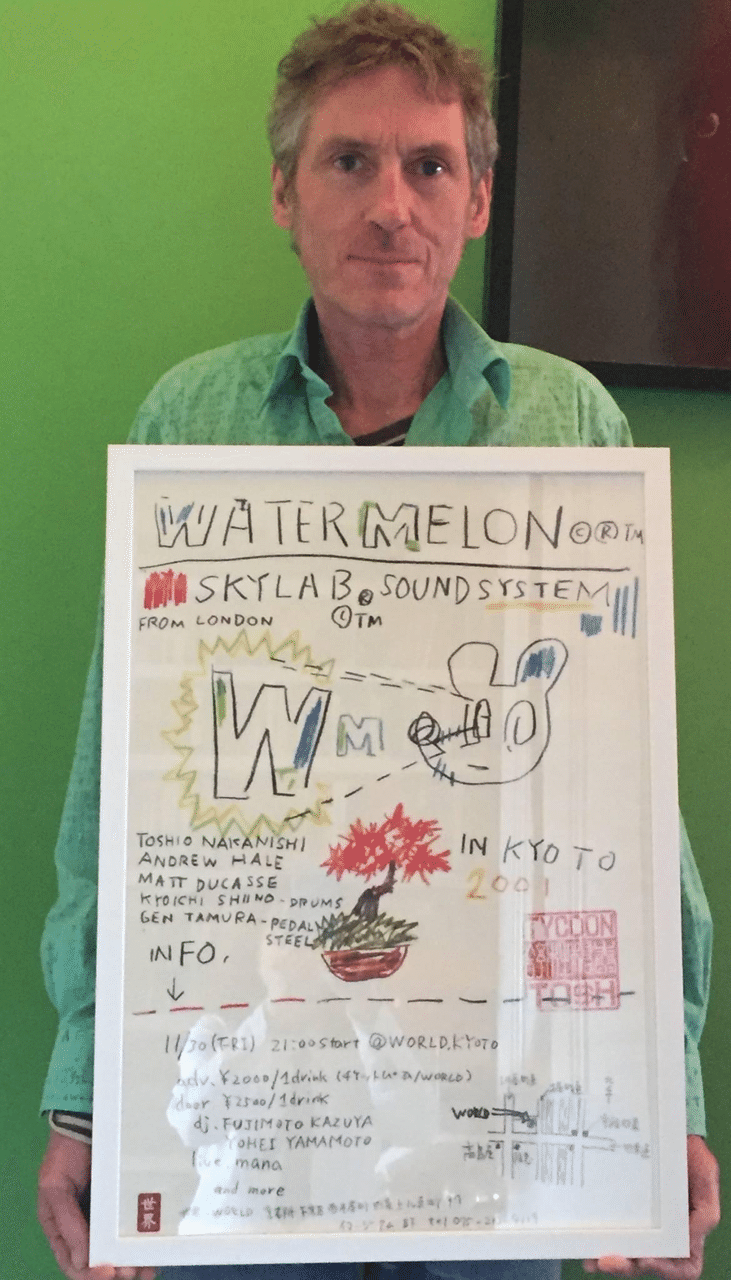 WATERMELON ©®TM
SKYLAB® SOUNDSYSTEM
FROM LONDON ©TM
W M
TOSHIO NAKANISHI
ANDREW HALE
MATT DUCASSE
KYOICHI SHIINO - DRUMS
GEN TAMURA - PEDAL
STEEL
IN KYOTO
2001
TYCOON
TOSH
INFO.
11/30 (FRI) 21:00 Start @WORLD.KYOTO
adv. ¥2000/1drink
door ¥2500/1drink
dj. FUJIMOTO KAZUYA
YOHEI YAMAMOTO
live. mana
and more
WORLD
世界
WORLD